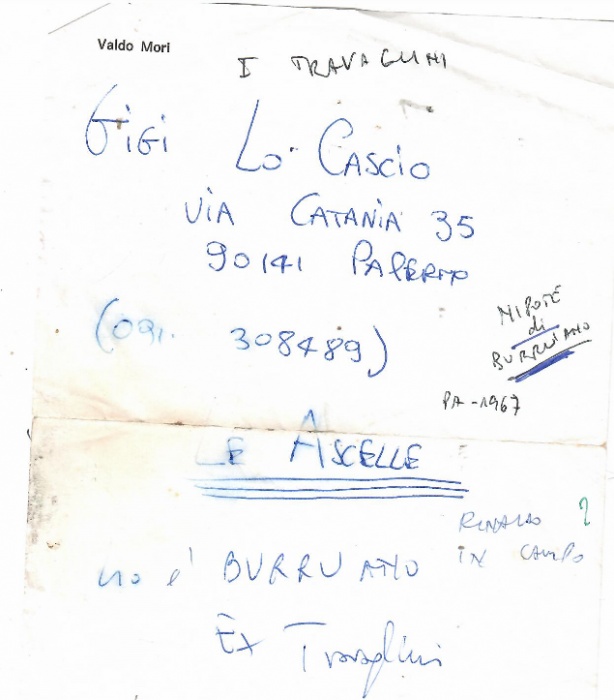 Valdo Mori
I TRAVAGLINI
GiGi Lo CASCiO
ViA CATANiA 35
90141 PALERMO
(091. 308489)
NIPOTE
di
BURRUANO
PA-1967
LE ASCELLE
RINALDO
IN CAMPO
2
BURRUANO
Ex Travaglini